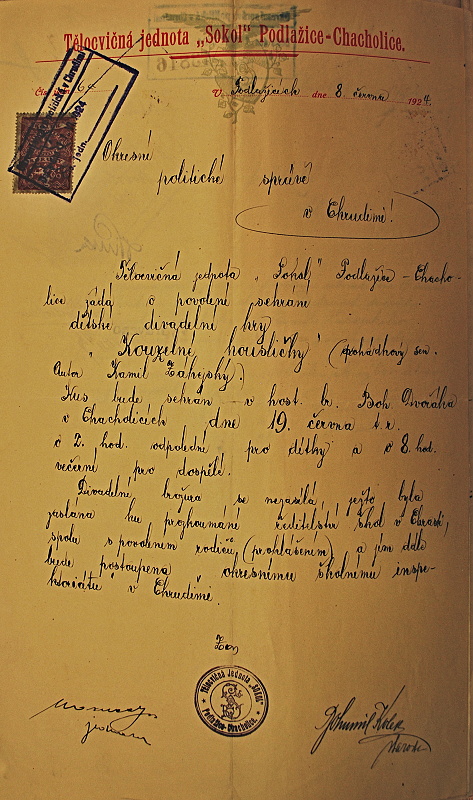 Tělocvičná jednota „Sokol" Podlažice-Chacholice.
V Podlažicích dne 8. června 1924.
Okresní
politické správě
v Chrudimi!
Tělocvičná jednota „Sokol" Podlažice - Chacho-
lice žádá o povolení sehrání
dětské divadelní hry
„Kouzelné housličky" (pohádkový sen.
Autor Kamil
Kus bude sehrán v host. br. Boh. Dvořáka
v Chacholicích dne 19. června t.r.
o 2. hod. odpolední pro dětky a o 8. hod.
večerní pro dospělé.
Divadelní brožura se nezasílá, ježto byla
zaslána ku prozkoumání ředitelství škol v Chrasti,
spolu s povolením rodičů, (prohlášením) a jím dále
bude postoupena okresnímu školnímu inspe-
ktorátu v Chrudimi.
Tělocvičná Jednota „SOKOL"
Podlažice-Chacholice.
Bohumil